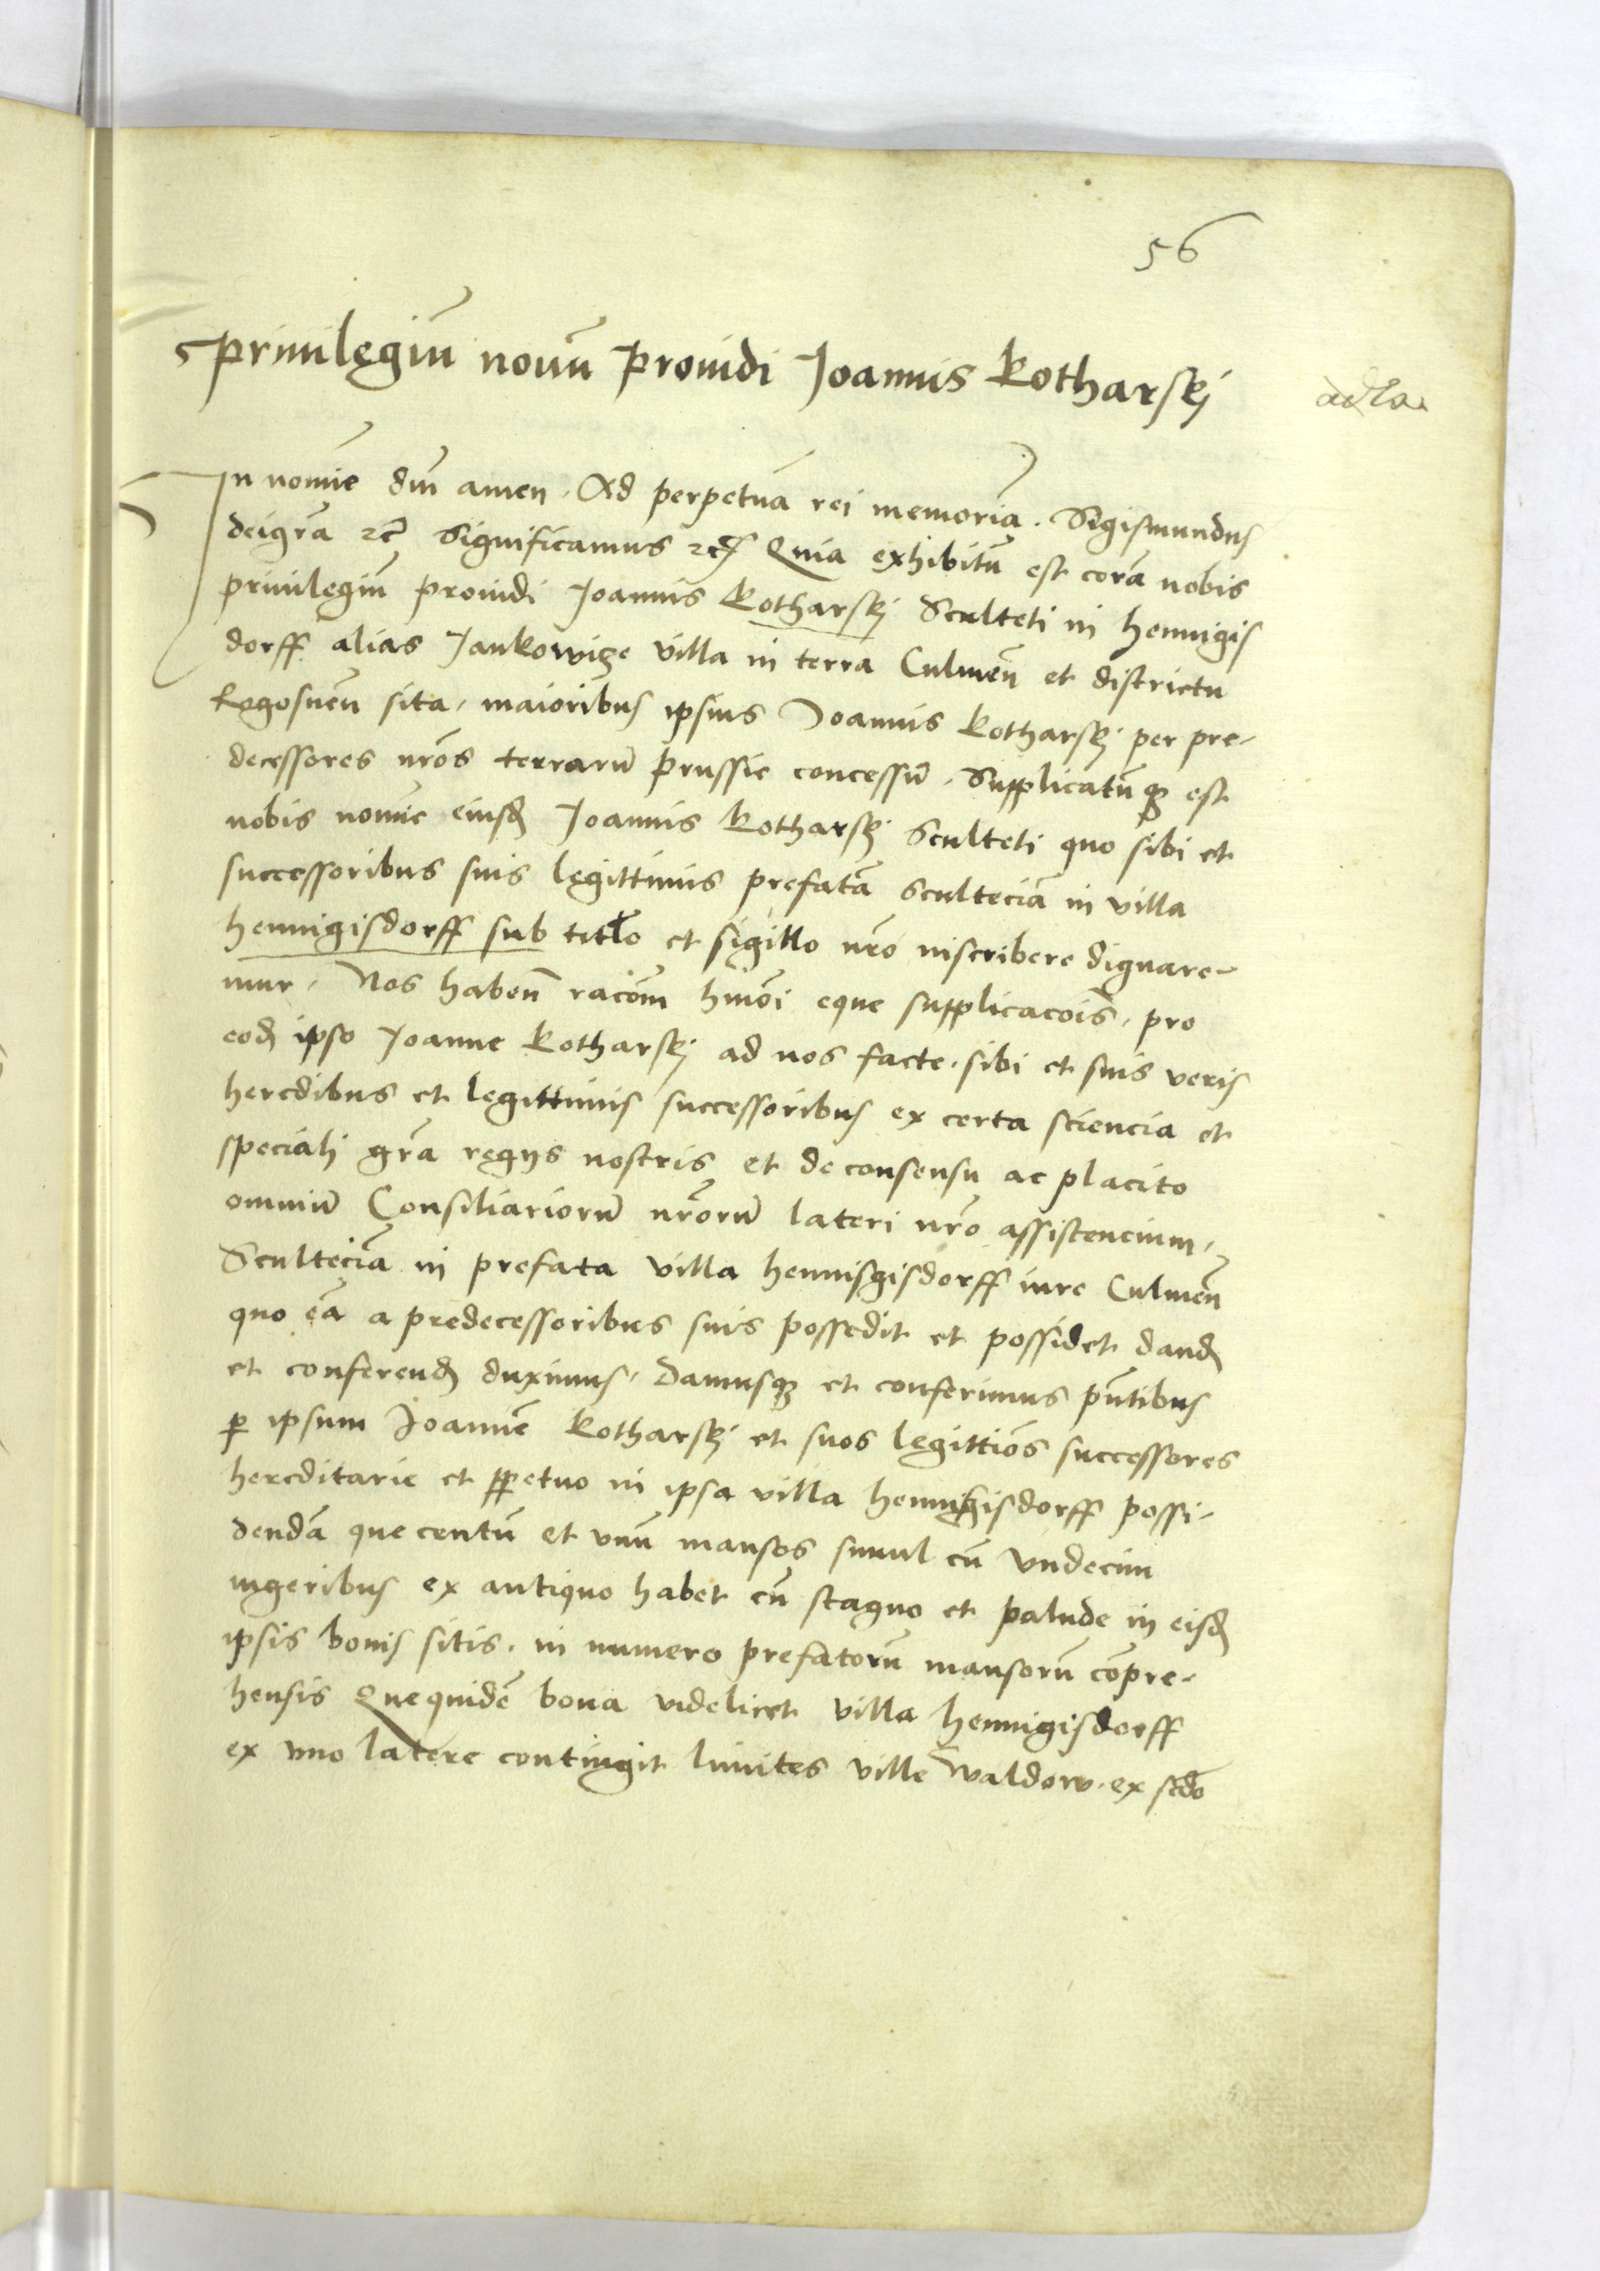 56
Priuilegiũ nouũ Prouidi Joannis Kotharskj
In nomine dnĩ amen. Ad perpetuã rei memoriã. Sigismundus
dei grã etc̃ Significamus etc̃ Quia exhibitũ est corã nobis
priuilegiũ prouidi Joannis Kotharskj Sculteti in Hennigis
dorff alias Jankowicze villa in terra Culmeñ et districtu
Rogosneñ sita, maioribus ipsius Joannis Kotharskj per pre-
decessores nrõs terrarũ prussie concessũ. Supplicatũqȝ est
nobis nomine eiusđ Joannis Kotharskj Sculteti quo sibi et
successoribus suis legittimis prefatã sculteciã in villa
Hennigisdorff sub titło et sigillo nrõ inscribere dignare-
mur. Nos habeñ racõm hmõi eque supplicacõis, pro
eođ ipso Joanne Kotharskj ad nos facte. sibi et suis veris
heredibus et legittimis successoribus ex certa sciencia et
speciali grã regijs nostris et de consensu ac placito
omniũ Consiliariorũ nrõrũ lateri nrõ assistencium,
Sculteciã in prefata villa Hennisgisdorff iure Culmeñ
quo eã a predecessoribus suis possedit et possidet danđ
et conferenđ duximus, Damusqȝ et conferimus pñtibus
ꝑ ipsum Joannẽ Kotharskj et suos legittiõs successores
hereditarie et ꝑpetuo in ipsa villa Hennigisdorff possi-
dendã que centũ et vnũ mansos simul cũ vndecim
iugeribus ex antiquo habet cũ stagno et palude in eisđ
ipsis bonis sitis. in numero prefatorũ mansorũ cõpre-
hensis Quequidẽ bona videlicet villa Hennigisdorff
ex vno latere contingit limites ville Waldow. ex scđo